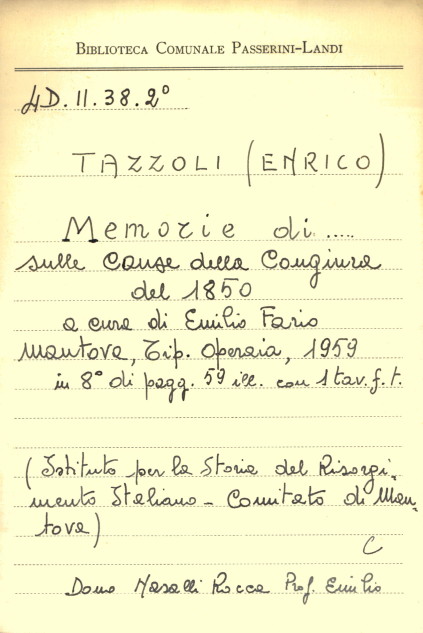 BIBLIOTECA COMUNALE PASSERINI-LANDI
4D.II.38.2°
TAZZOLI (ENRICO)
Memorie di .....
sulle Cause della Congiura
del 1850
a cura di Emilio Fario
Mantova, Tip. Operaia, 1959
in 8° di pagg. 59 ill. con 1 tav. f. t.
(Istituto per la Storia del Risorgi-
mento Italiano - Comitato di Man-
tova)
C
Dono Nasalli Rocca Prof. Emilio